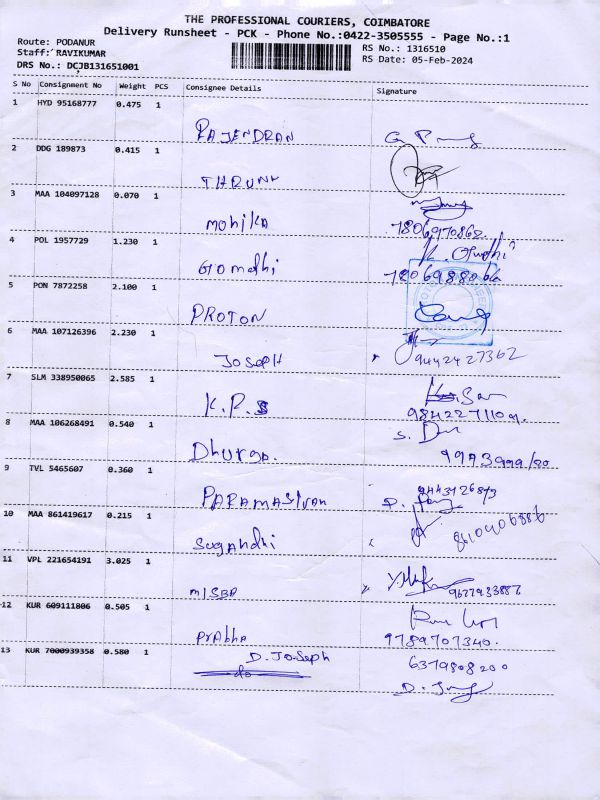 THE PROFESSIONAL COURIERS, COIMBATORE
Delivery Runsheet - PCK - Phone No.:0422-3505555 - Page No.:1
Route: PODANUR
Staff: RAVIKUMAR
DRS No.: DCJB131651001
RS No.: 1316510
RS Date: 05-Feb-2024
S No Consignment No Weight PCS Consignee Details Signature
1 HYD 95168777 0.475 1
RAJENDRAN
2 DDG 189873 0.415 1
3 MAA 104097128 0.070 1
mohika 7806970862
4 POL 1957729 1.230 1
Gomdhi 7806988066
5 PON 7872258 2.100 1
PROTON
6 MAA 107126396 2.230 1
JOSEPH 9442427362
7 SLM 338950065 2.585 1
K.P.S
8 MAA 106268491 0.540 1
Dhurga.
9 TVL 5465607 0.360 1
PARAMASIVAM
10 MAA 861419617 0.215 1
Sugandhi
11 VPL 221654191 3.025 1
MISBA 9677933887
12 KUR 609111806 0.505 1
Prabha 9789707340.
13 KUR 7000939358 0.580 1
D. Joseph 6379808200
do